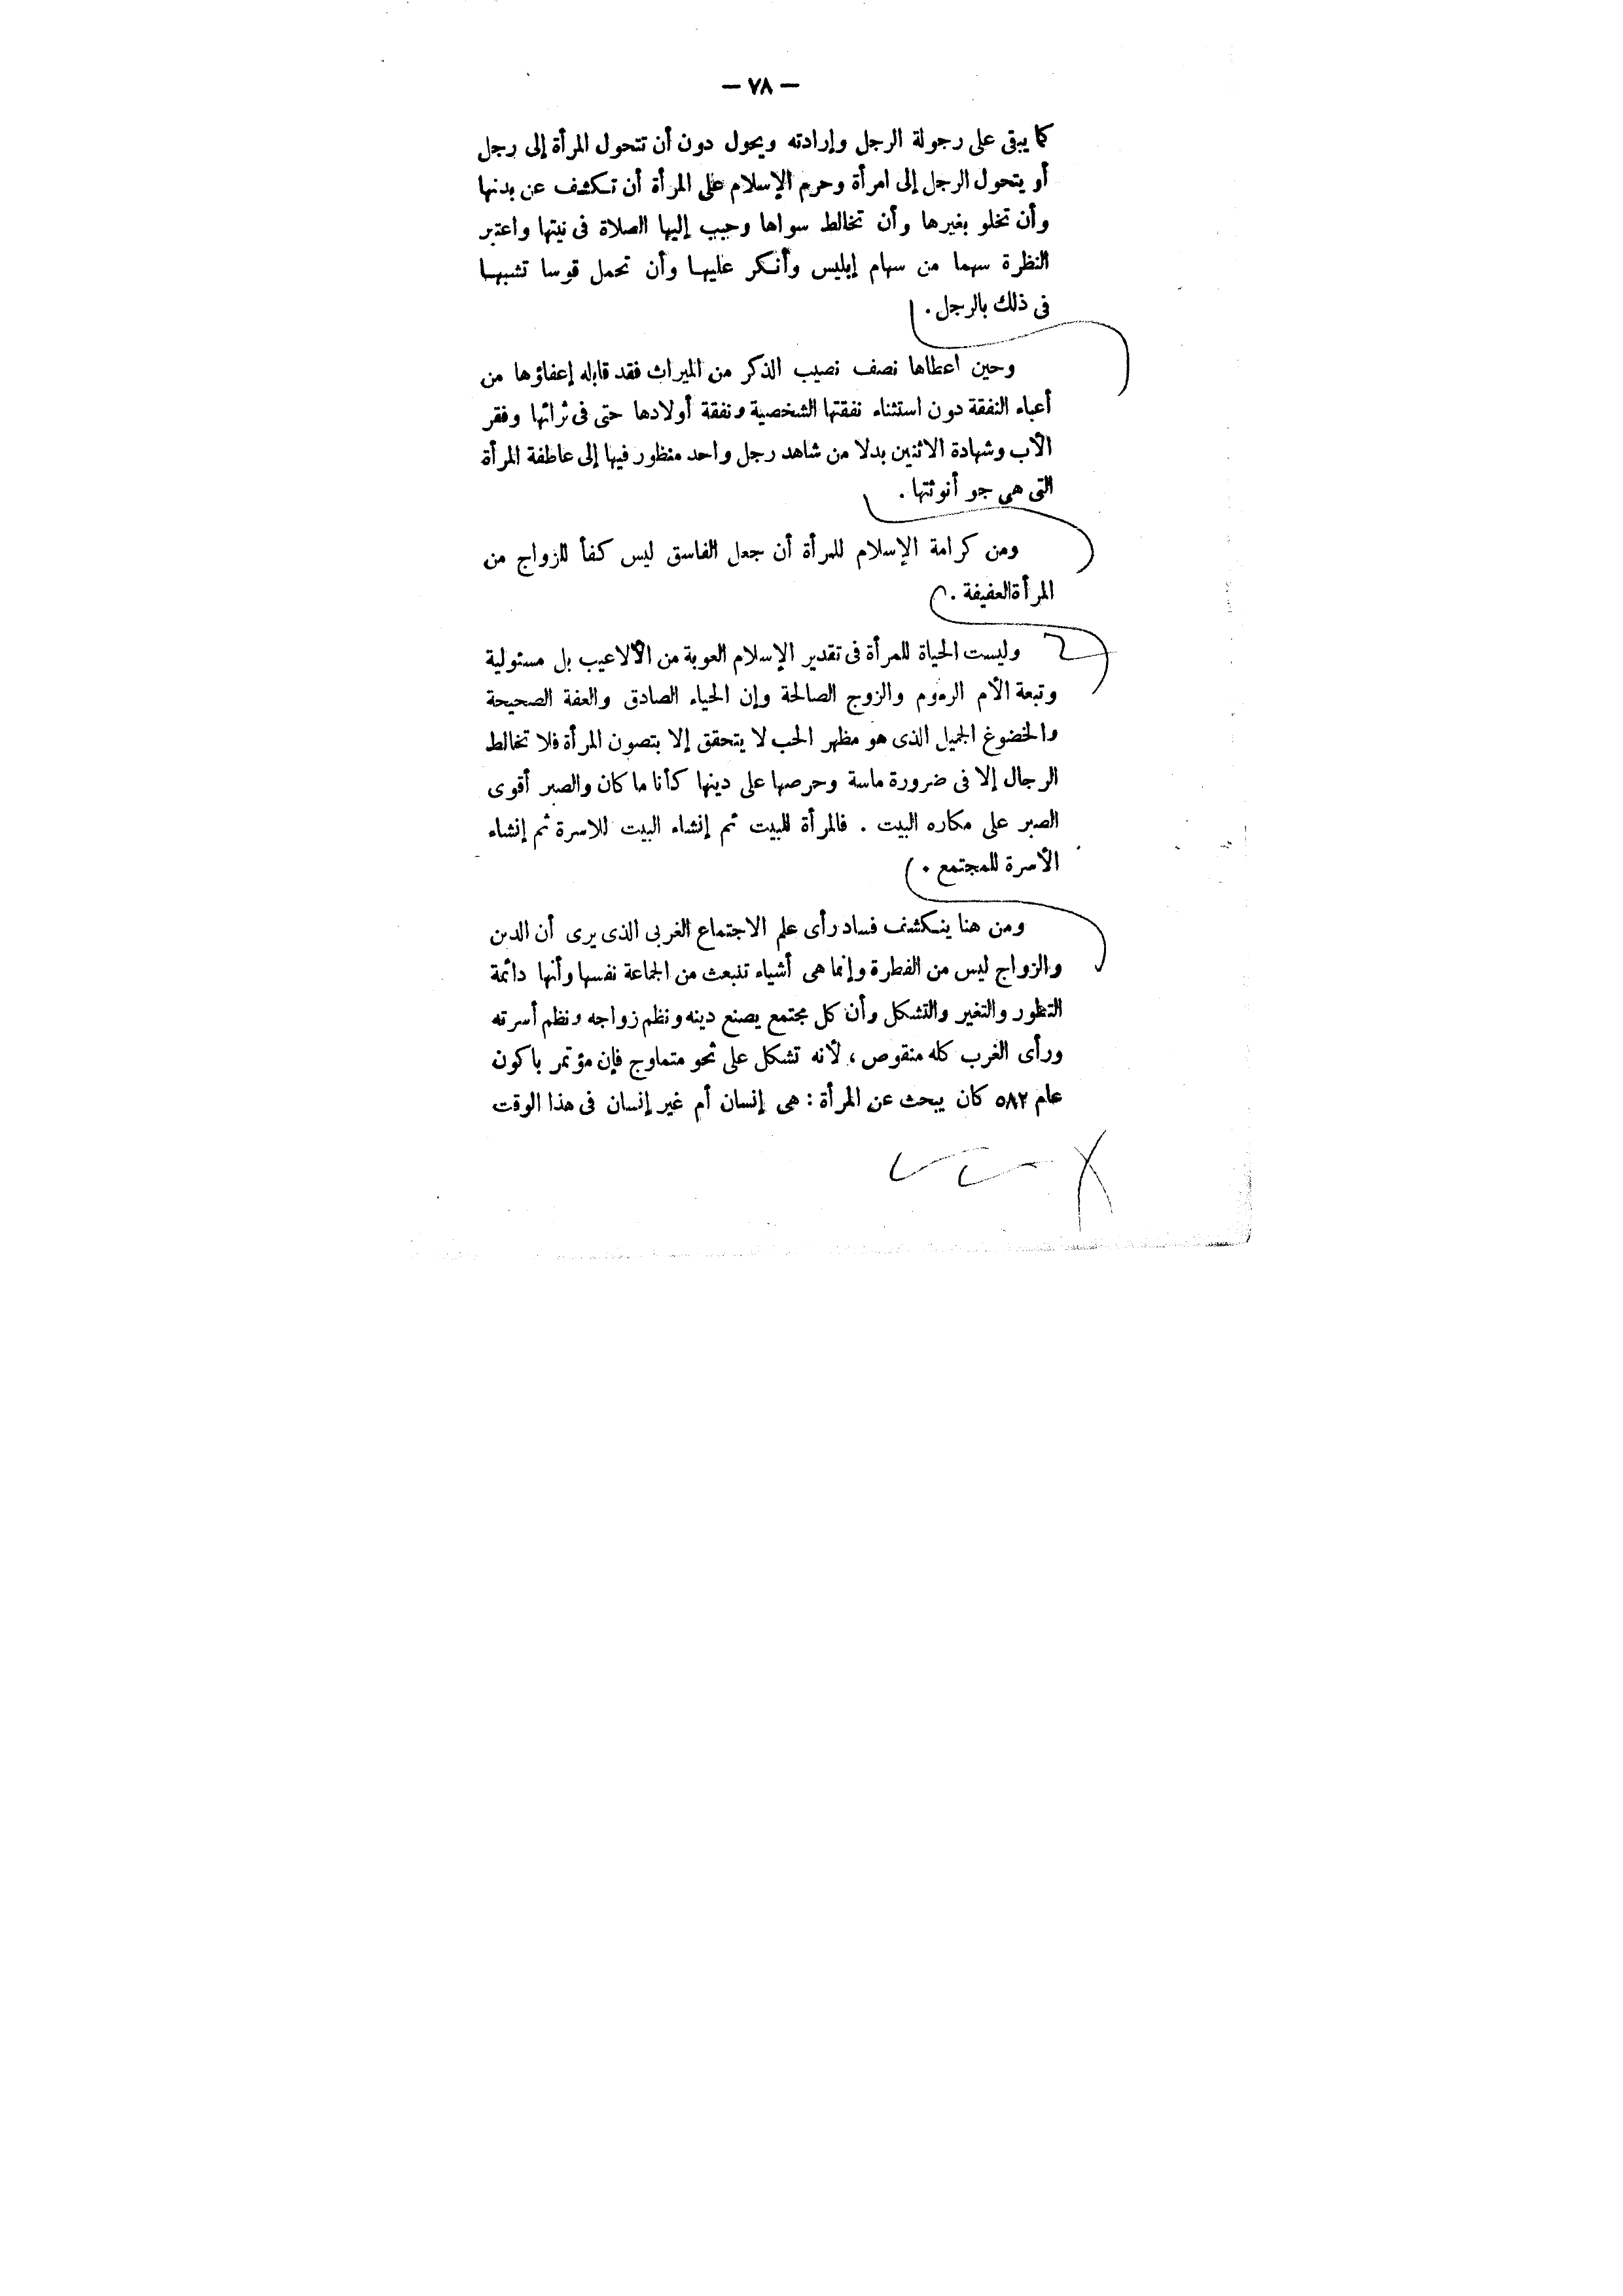 — ٧٨ —
كما يبقى على رجولة الرجل وإرادته ويحول دون أن تتحول المرأة إلى رجل
أو يتحول الرجل إلى امرأة وحرم الإسلام على المرأة أن تكشف عن بدنها
وأن تخلو بغيرها وأن تخالط سواها وحبب إليها الصلاة فى نيتها واعتبر
النظرة سهما من سهام إبليس وأنكر عليها وأن تحمل قوسا تشبها
فى ذلك بالرجل .
وحين اعطاها نصف نصيب الذكر من الميراث فقد قابله إعفاؤها من
أعباء النفقة دون استثناء نفقتها الشخصية ونفقة أولادها حتى فى ثرائها وفقر
الأب وشهادة الاثنين بدلا من شاهد رجل واحد منظور فيها إلى عاطفة المرأة
التى هى جو أنوثتها .
ومن كرامة الإسلام للمرأة أن جعل الفاسق ليس كفأ للزواج من
المرأة العفيفة .
وليست الحياة للمرأة فى تقدير الإسلام العوبة من الألاعيب بل مسئولية
وتبعة الأم الرءوم والزوج الصالحة وإن الحياء الصادق والعفة الصحيحة
والخضوغ الجميل الذى هو مظهر الحب لا يتحقق إلا بتصون المرأة فلا تخالط
الرجال إلا فى ضرورة ماسة وحرصها على دينها كأنا ما كان والصبر أقوى
الصبر على مكاره البيت . فالمرأة للبيت ثم إنشاء البيت للاسرة ثم إنشاء
الأسرة للمجتمع .
ومن هنا ينكشف فساد رأى علم الاجتماع الغربى الذى يرى أن الدين
والزواج ليس من الفطرة وإنما هى أشياء تنبعث من الجماعة نفسها وأنها دائمة
التطور والتغير والتشكل وأن كل مجتمع يصنع دينه ونظم زواجه ونظم أسرته
ورأى الغرب كله منقوص ، لأنه تشكل على نحو متماوج فإن مؤتمر باكون
عام ٥٨٢ كان يبحث عن المرأة : هى إنسان أم غير إنسان فى هذا الوقت